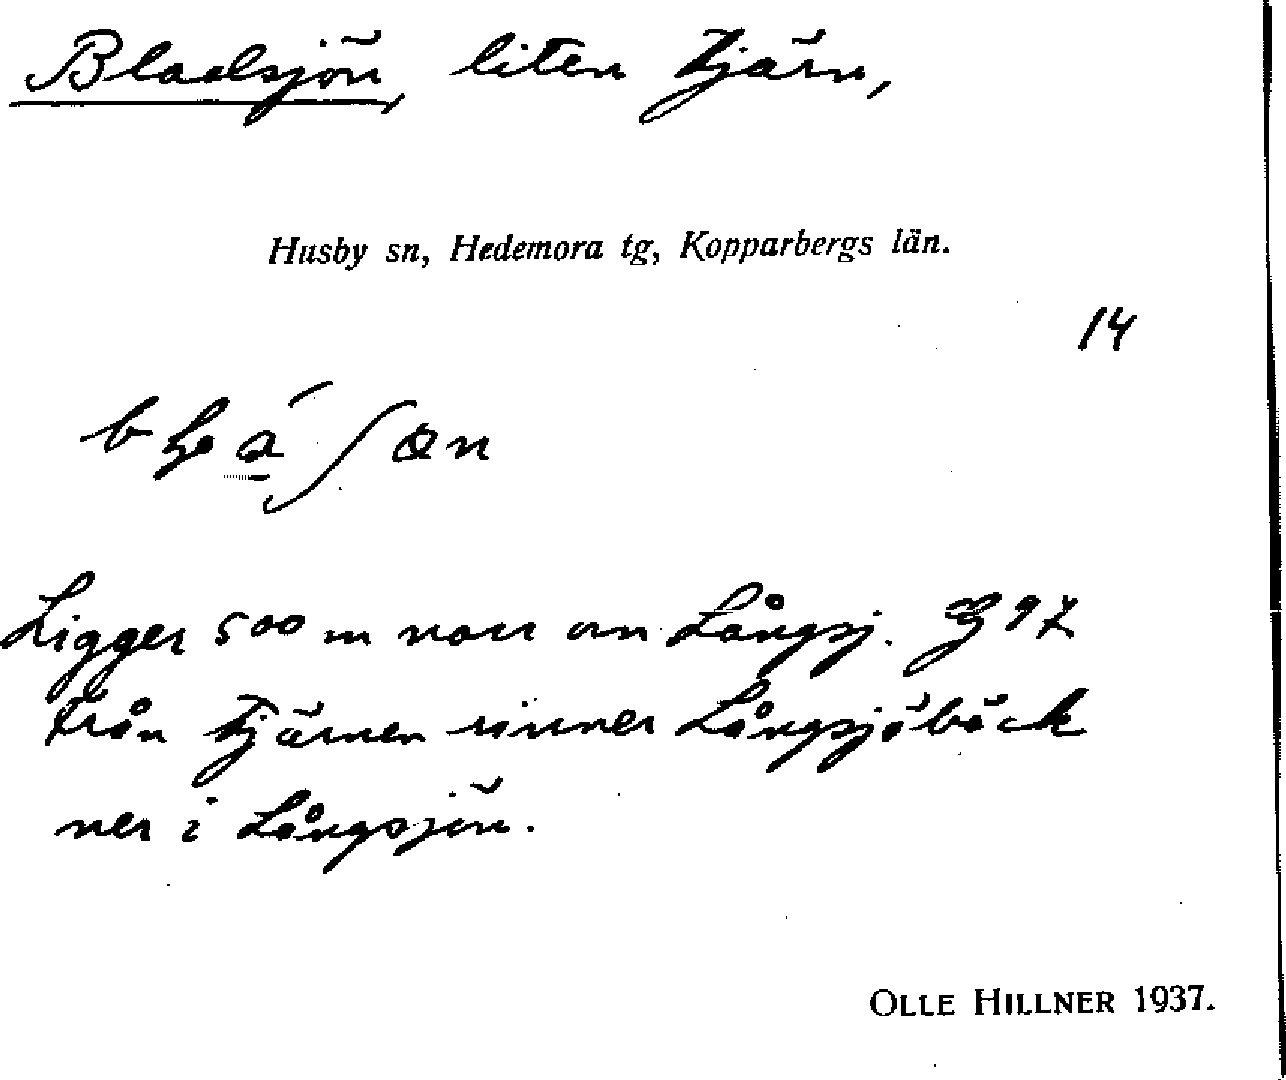 Bladsjön, liten tjärn,
Husby sn, Hedemora tg, Kopparbergs län.
14
Ligger 500 m norr om Långsj.
Från tjärnen rinner Långsjöbäck
ner i Långsjön.
OLLE HILLNER 1937.